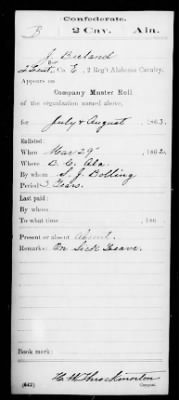 Confederate.
B 2 Cav. Ala.
J. Beeland
2 Lieut., Co. E, 2 Reg't Alabama Cavalry.
Appears on
Company Muster Roll
of the organization named above,
for July & August, 1863.
Enlisted:
When Mar 29, 1862.
Where B. C. Ala.
By whom S. J. Bolling
Period 3 Years.
Last paid:
By whom
To what time , 186 .
Present or absent Absent.
Remarks: On Sick Leave.
Book mark:
H. W. Throckmorton
(642) Copyist.